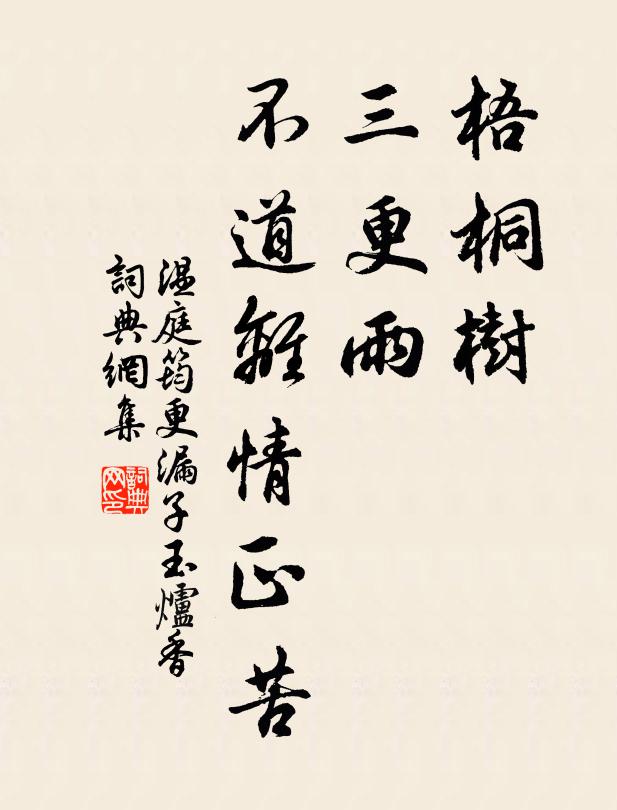 梧桐樹
三更雨
不道離情正苦
温庭筠更漏子玉爐香
詞典網集
詞典網印